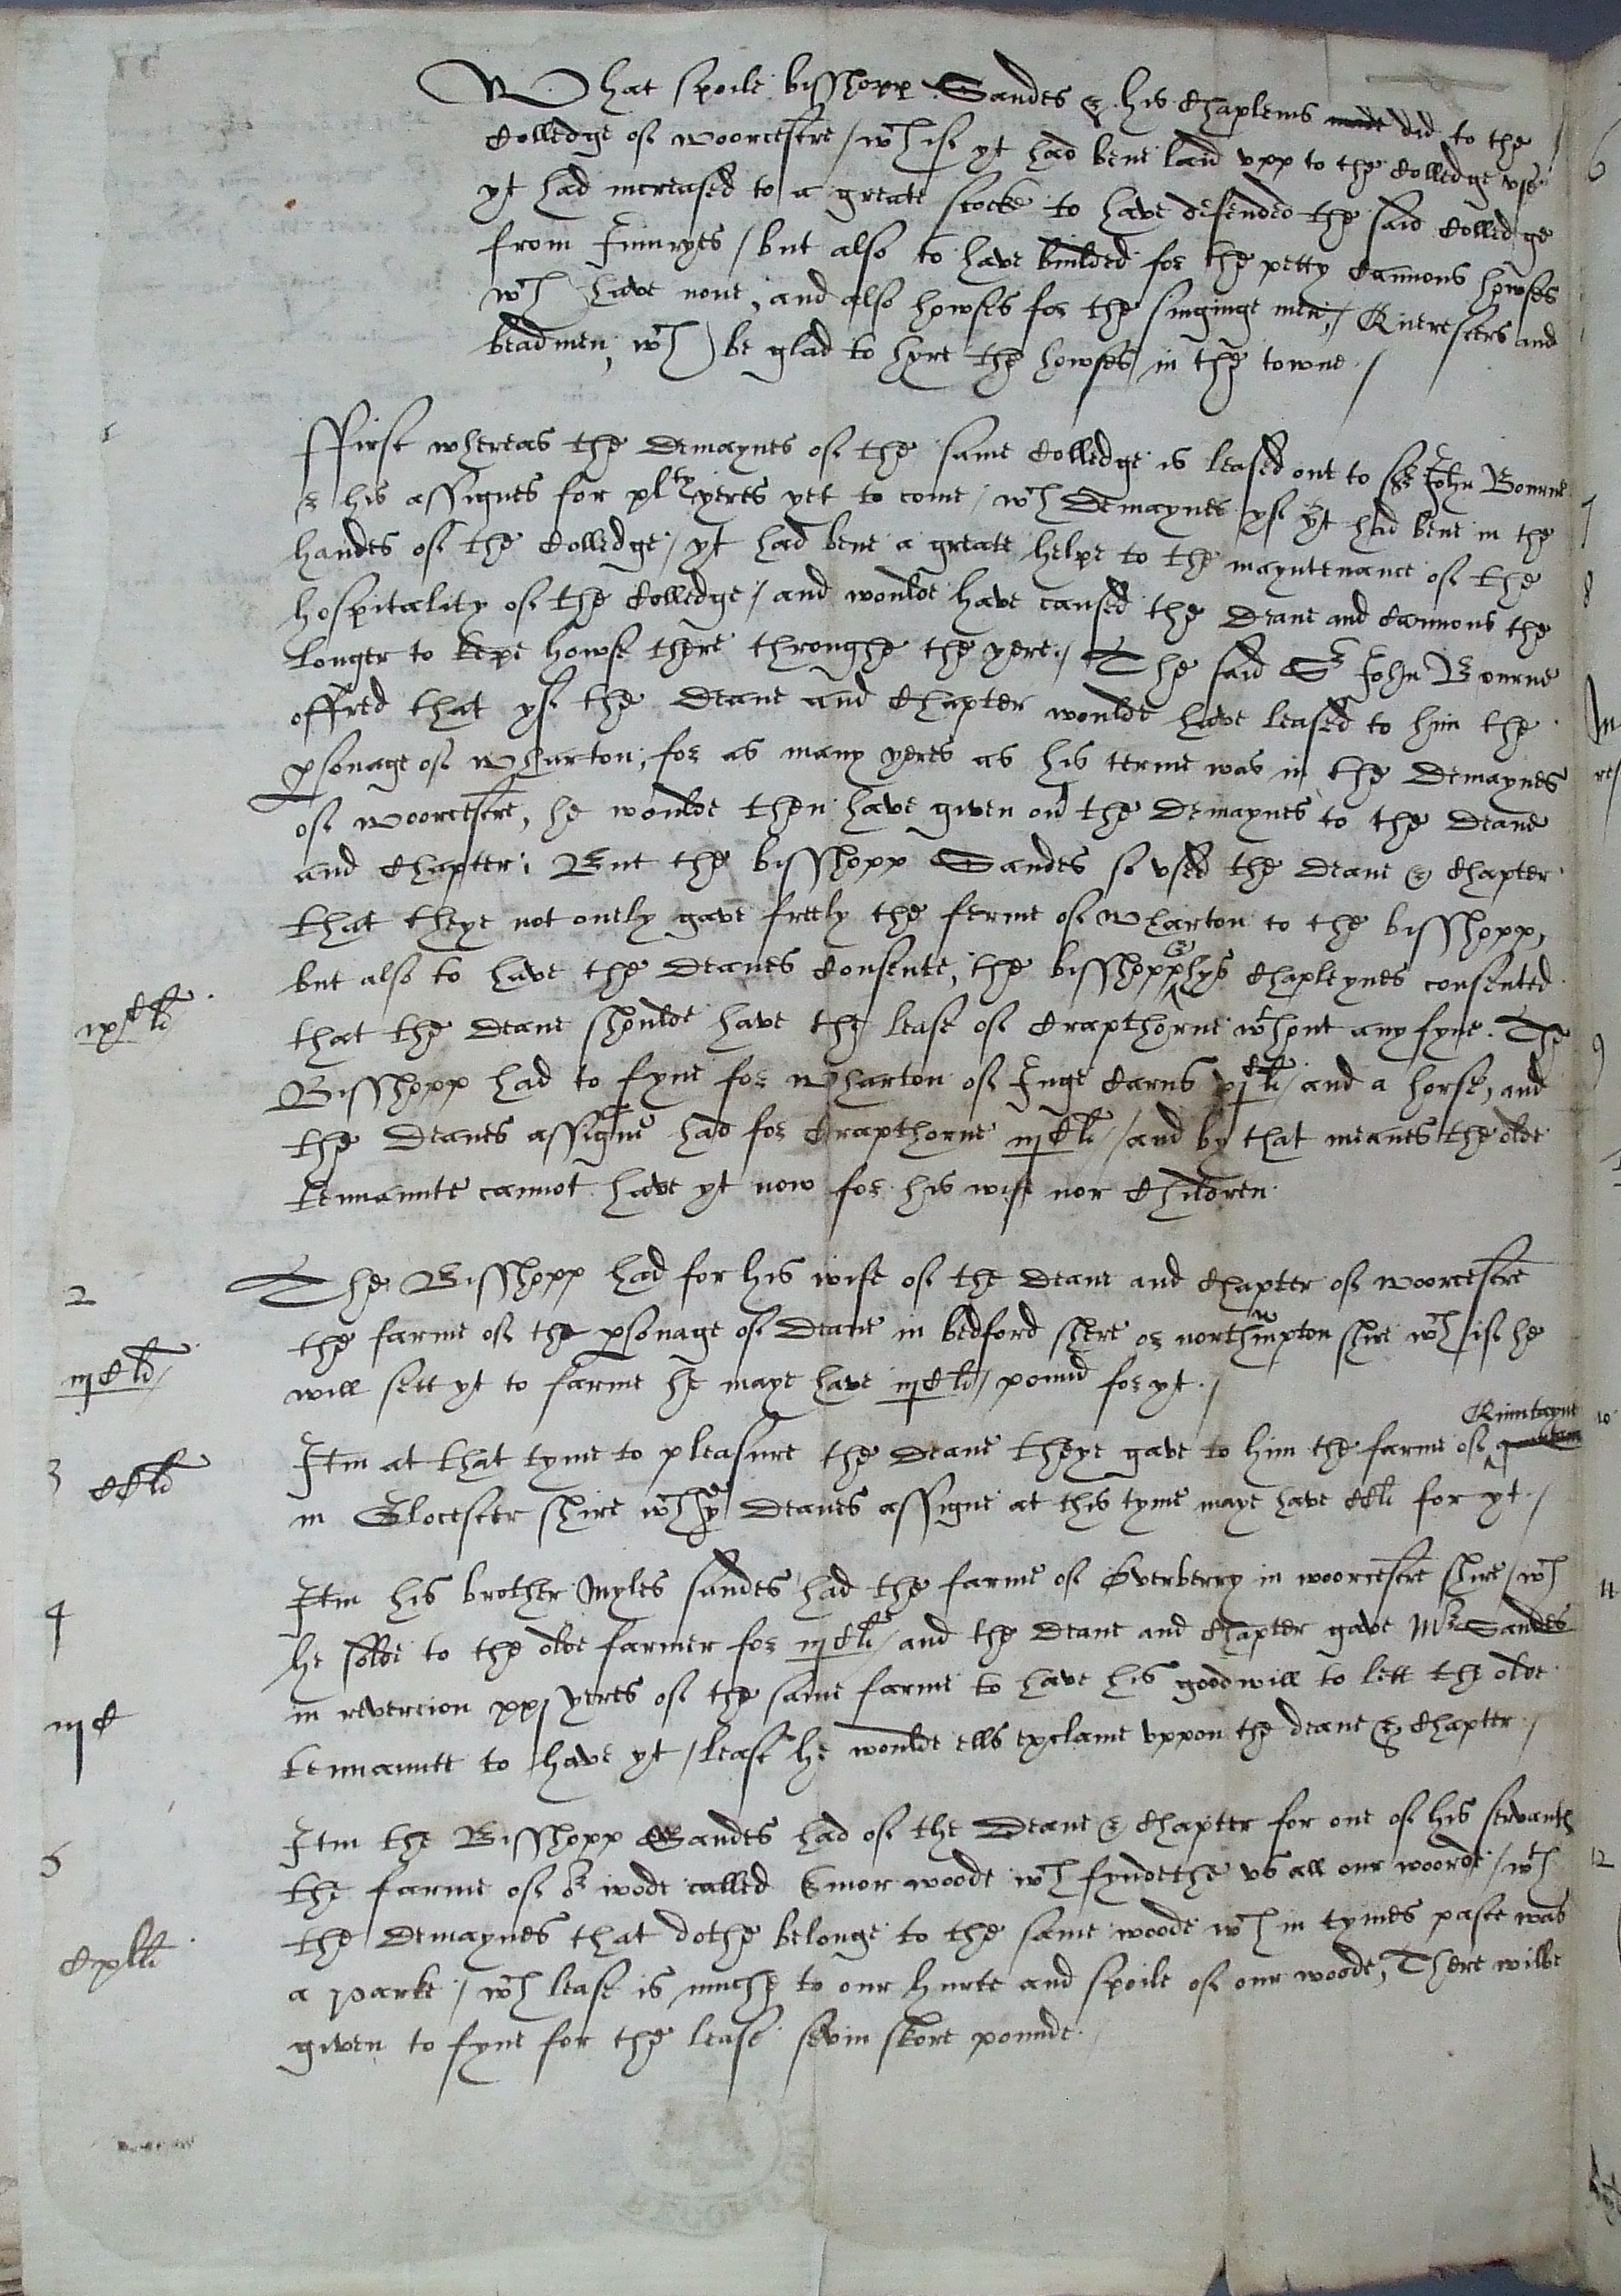 What spoile bisshopp Sandes & his Chapleins made did to the
Colledge of Woorcester / wch if yt had bene laid upp to the Colledge use
yt had increased to a greate stocke to have defended the said Colledge
from Iniuryes / but also to have builded for the petty Cannons howses
wch have none, and also howses for the singinge men, / Queresters and
beadmen, wch be glad to hyre the howses in the towne /
1
ffirst whereas the Demaynes of the same Colledge is leased out to Sr John Bourne
& his assignes for xlty yeres yet to come / wch Demaynes yf yt had bene in the
handes of the Colledge / yt had bene a greate helpe to the mayntenance of the
hospitality of the Colledge / and woulde have caused the Deane and Cannons the
longer to kepe howse there throughe the yere. / The said Sr John Bourne
offred that yf the Deane and Chapter woulde have leased to him the
psonage of Wharton, for as many yeres as his terme was in the Demaynes
of Woorcester, he woulde then have given ovr the Demaynes to the Deane
and Chapter; But the bisshopp Sandes so used the Deane & Chapter
that theye not onely gave freely the ferme of Wharton to the bisshopp,
but also to have the Deanes Consente, the bisshopp & hys Chapleynes consented
ixC li
that the Deane shoulde have the lease of Crapthorne wthout any fyne. The
Bisshopp had to fyne for Wharton of Inge Carns vjC li / and a horse, and
the Deanes assigne had for Crapthorne iijC li / and by that meanes the olde
tennannte cannot have yt now for his wife nor Children
2
The Bisshopp had for his wife of the Deane and Chapter of Woorcester
the farme of the psonage of Deane in bedford shere or northampton shire wch if he
iijC li /
will sett yt to farme he maye have iijC li / pound for yt. /
3 CC li
Itm at that tyme to pleasure the Deane theye gave to him the farme of Quintayne
in Glocester shire wch ye Deanes assigne at this tyme maye have CC li for yt. /
4
Itm his brother Myles sandes had the farme of Overberry in woorcester shire / wch
he solde to the olde farmer for iijC li / and the Deane and Chapter gave Mr Sandes
in revercion xxj yeres of the same farme to have his goodwill to lett the olde
iijC
tennannte to have yt / lease he woulde ells exclame uppon the deane & Chapter. /
5
Itm the Bisshopp Sandes had of the Deane & Chapter for one of his servants
the farme of or wode called woode wch fyndethe us all our woode / wth
the Demaynes that dothe belonge to the same woode wch in tymes paste was
Cxl li
a parke / wch lease is muche to our hurte and spoile of our woode, There wilbe
given to fyne for the lease sevin skore pounde.
6
7
8
9
10
11
12